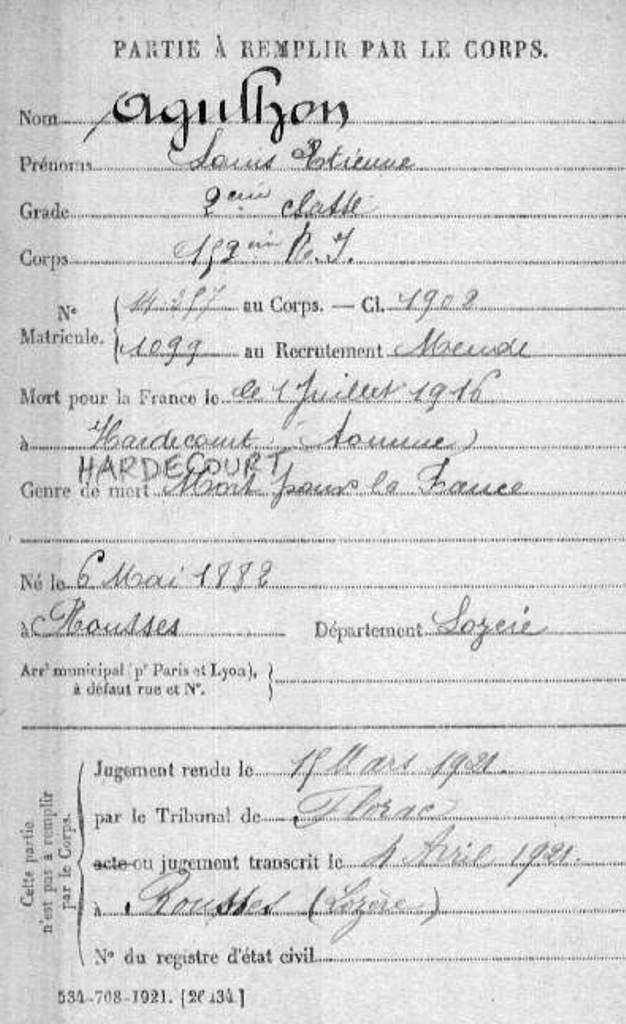 PARTIE À REMPLIR PAR LE CORPS.
Nom Agulhon
Prénoms Louis Etienne
Grade 2eme classe
Corps 153eme R. I.
N° Matricule. 14 357 au Corps. — Cl. 1902
1099 au Recrutement Mende
Mort pour la France le le 1 Juillet 1916
à Hardecourt (Somme)
HARDECOURT
Genre de mort Mort pour la France
Né le 6 Mai 1882
à Rousses Département Lozère
Arrt municipal (pr Paris et Lyon), à défaut rue et N°.
Cette partie n'est pas à remplir par le Corps.
Jugement rendu le 15 Mars 1921.
par le Tribunal de Florac
acte ou jugement transcrit le 4 Avril 1921.
à Rousses (Lozère)
N° du registre d'état civil
534-708-1921. [26434]